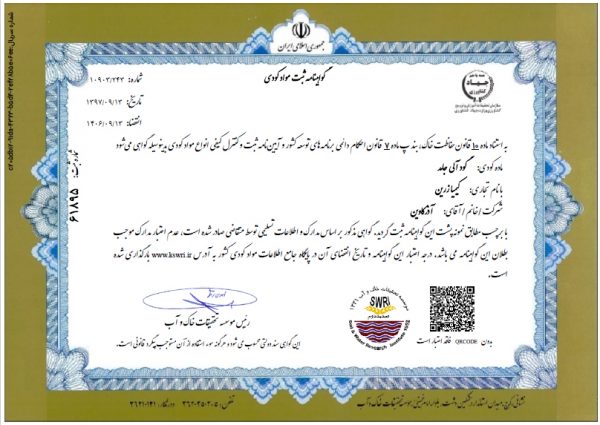 جمهوری اسلامی ایران
گواهینامه ثبت مواد کودی
شماره: ۱۰۹۰۳/۲۴۳
تاریخ: ۱۳۹۷/۰۹/۱۳
انقضا: ۱۴۰۶/۰۹/۱۳
جهاد
کشاورزی
شماره ثبت: ۶۱۸۹۵
به استناد ماده ۱۰ قانون حفاظت خاک، بند پ ماده ۷ قانون احکام دائمی برنامه‌های توسعه کشور و آیین‌نامه ثبت و کنترل کیفی انواع مواد کودی بدینوسیله گواهی می‌شود
ماده کودی: کود آلی جامد
با نام تجاری: کیمیا زرین
شرکت / خانم / آقای: آذر کاوین
با برچسب مطابق نمونه پشت این گواهینامه ثبت گردید، گواهی مذکور بر اساس مدارک و اطلاعات تسلیمی توسط متقاضی صادر شده است، عدم اعتبار مدارک موجب
بطلان این گواهینامه می باشد، درجه اعتبار این گواهینامه و تاریخ انقضای آن در پایگاه جامع اطلاعات مواد کودی کشور به آدرس www.kswri.ir بارگذاری شده
است.
موسسه تحقیقات خاک و آب ۱۳۴۱
SWRI
Soil & Water Research Institute
رئیس موسسه تحقیقات خاک و آب
بدون QRCODE فاقد اعتبار است
این گواهی سند دولتی محسوب می شود و هرگونه سوء استفاده از آن مستوجب پیگرد قانونی است.
نشانی: کرج، میدان استاندارد، مشکین دشت، بلوار امام خمینی، موسسه تحقیقات خاک و آب
تلفن: ۵-۳۶۲۰۴۵۰۲
دورنگار: ۳۶۲۱۰۱۲۱